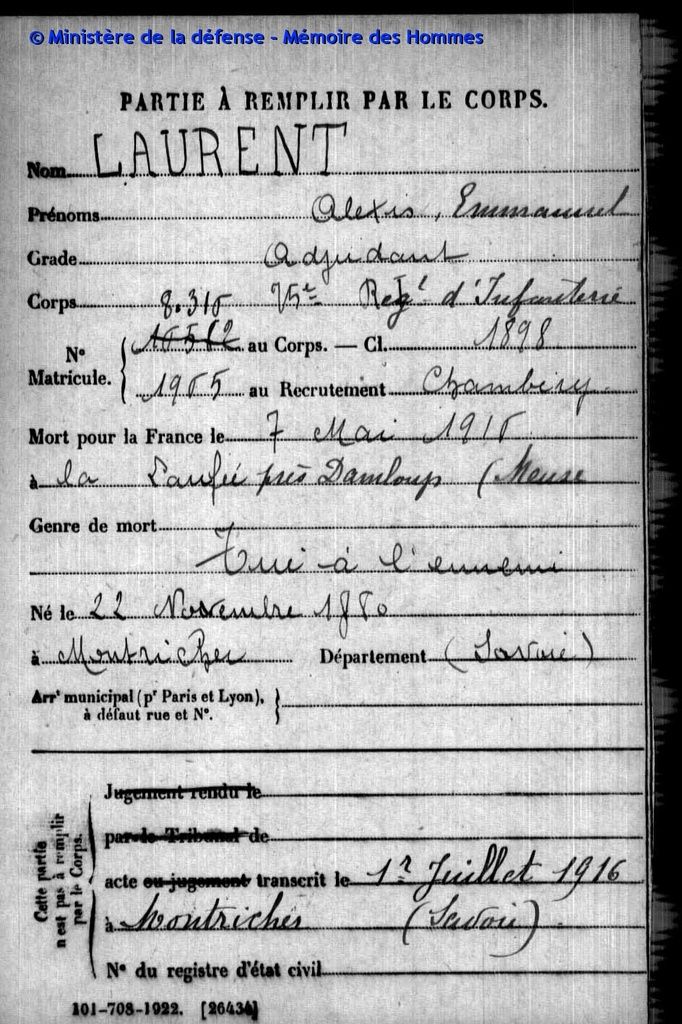 © Ministère de la défense - Mémoire des Hommes
PARTIE À REMPLIR PAR LE CORPS.
Nom LAURENT
Prénoms Alexis, Emmanuel
Grade Adjudant
Corps 75e Regt d'Infanterie
8.316
N° Matricule. 16562 au Corps. — Cl. 1898
1965 au Recrutement Chambéry
Mort pour la France le 7 Mai 1916
à la Laufée près Damloup (Meuse
Genre de mort
Tué à l'ennemi
Né le 22 Novembre 1880
à Montricher Département (Savoie)
Arrt municipal (pr Paris et Lyon),
à défaut rue et N°.
Cette partie n'est pas à remplir par le Corps.
Jugement rendu le
par le Tribunal de
acte ou jugement transcrit le 1r Juillet 1916
à Montricher (Savoie)
N° du registre d'état civil
101-708-1922. [26434]